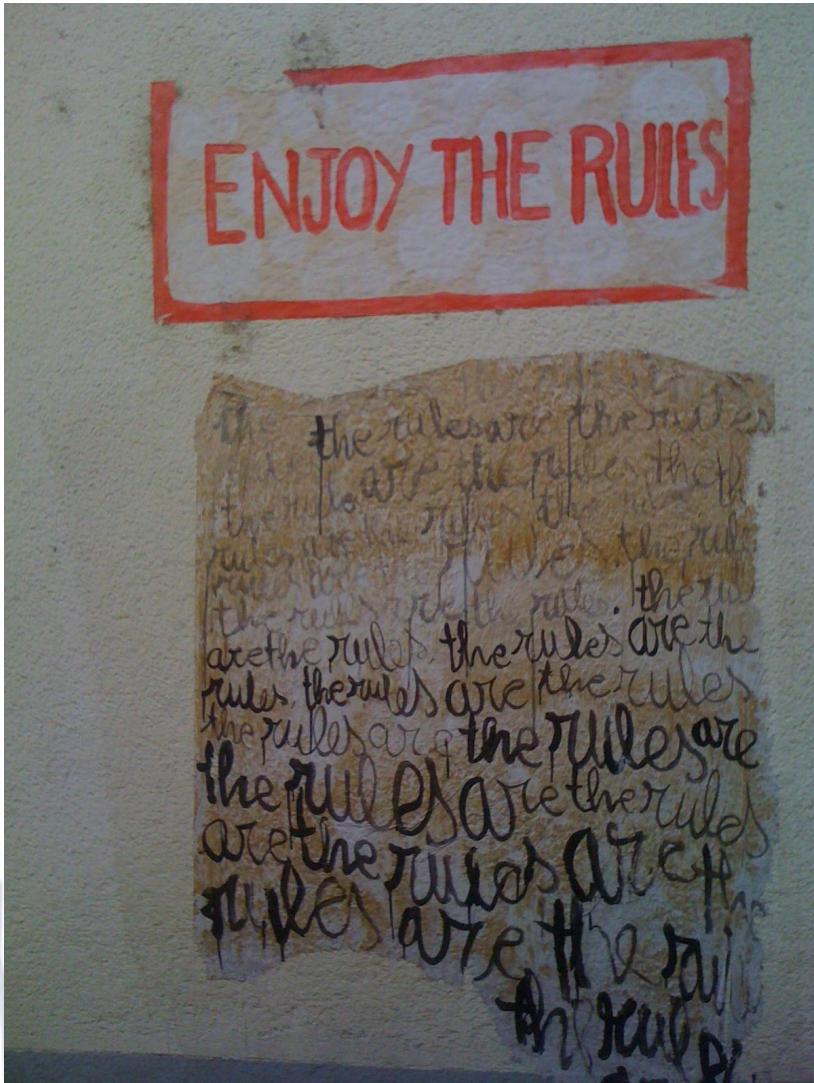 ENJOY THE RULES
the the rules are the rules
are the rules. the th
the rules the
rules are the rules. the rule
rules are the
the rules are the rules. the rul
are the rules. the rules are the
rules. the rules are the rules
the rules are the rules are
the rules are the rules
are the rules are the
rules are the rule
the rules